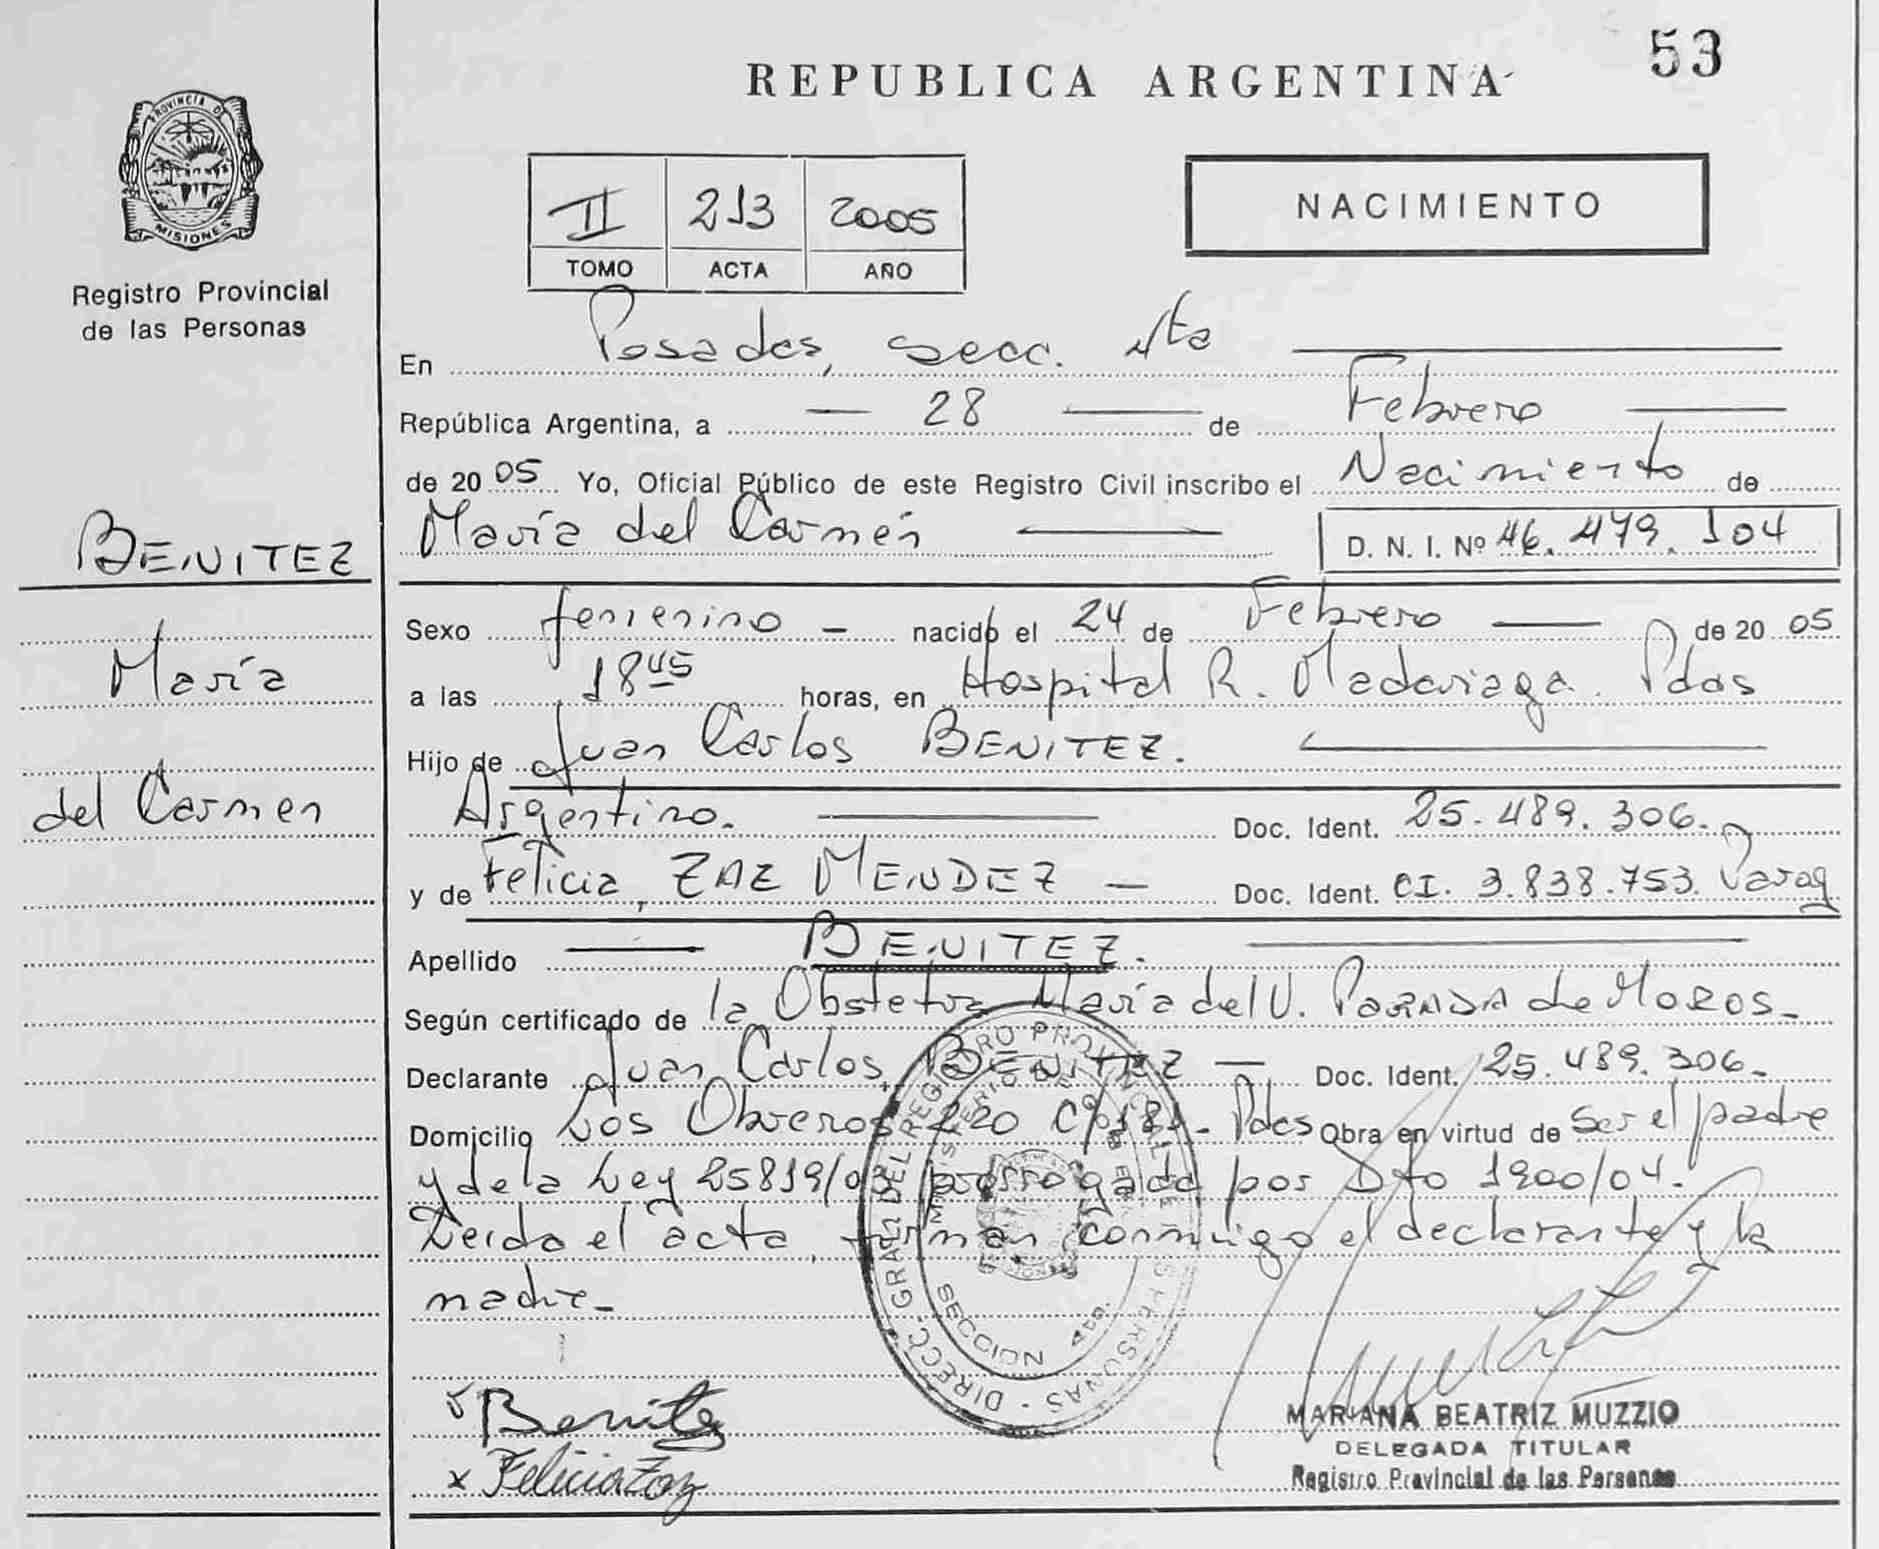 53
REPUBLICA ARGENTINA
PROVINCIA DE
MISIONES
Registro Provincial
de las Personas
II 213 2005
TOMO ACTA AÑO
NACIMIENTO
En Posadas, secc. 4ta
República Argentina, a 28 de Febrero
de 2005 Yo, Oficial Público de este Registro Civil inscribo el Nacimiento de
María del Carmen D. N. I. Nº 46.479.104
BENITEZ
María
del Carmen
Sexo femenino nacido el 24 de Febrero de 2005
a las 18 45 horas, en Hospital R. Madariaga. Pdas
Hijo de Juan Carlos BENITEZ.
Argentino. Doc. Ident. 25.489.306.
y de Felicia, ZAZ MENDEZ Doc. Ident. CI. 3.838.753. Parag
Apellido BENITEZ.
Según certificado de la Obstetra María del V. PARADA de MOROS
Declarante Juan Carlos, BENITEZ Doc. Ident. 25.489.306.
Domicilio Los Obreros 220 Pdas Obra en virtud de ser el padre
y de la Ley 25819/03 prorrogada por Dto 1900/04.
Leida el acta, firman conmigo el declarante y la
madre
DIRECC. GRAL. DEL REGISTRO PROVINCIAL DE LAS PERSONAS
MINISTERIO DE
SECCION 4ta.
Benitez
x Felicia Zaz
MARIANA BEATRIZ MUZZIO
DELEGADA TITULAR
Registro Provincial de las Personas